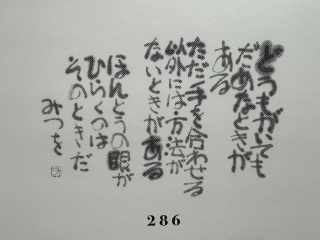 どうもがいても
だめなときが
ある
ただ手を合わせる
以外には方法が
ないときがある
ほんとうの眼が
ひらくのは
そのときだ
みつを
286